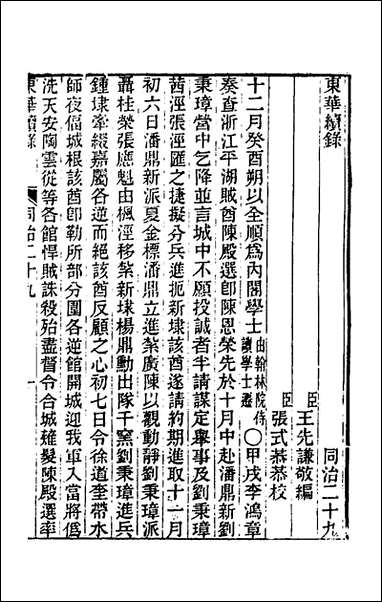 東華續錄　同治二十九
臣王先謙敬編
臣張式恭恭校
十二月癸酉朔以全順爲內閣學士由翰林院侍讀學士遷〇甲戌李鴻章
奏查浙江平湖賊酋陳殿選卽陳恩榮先於十月中赴潘鼎新劉
秉璋營中乞降並言城中不願投誠者半請謀定舉事及劉秉璋
茜涇張涇匯之捷擬分兵進扼新埭該酋遂請約期進取十一月
初六日潘鼎新派夏金標潘鼎立進紮廣陳以觀動靜劉秉璋派
聶桂榮張應魁由楓涇移紮新埭楊鼎勳出隊千窯劉秉璋進兵
鍾埭牽綴嘉屬各逆而絕該酋反顧之心初七日令徐道奎帶水
師夜偪城根該酋卽勒所部分圍各逆館開城迎我軍入當將僞
洗天安陶雲從等各館悍賊誅殺殆盡督令合城薙髮陳殿選率
東華續錄　同治二十九　一